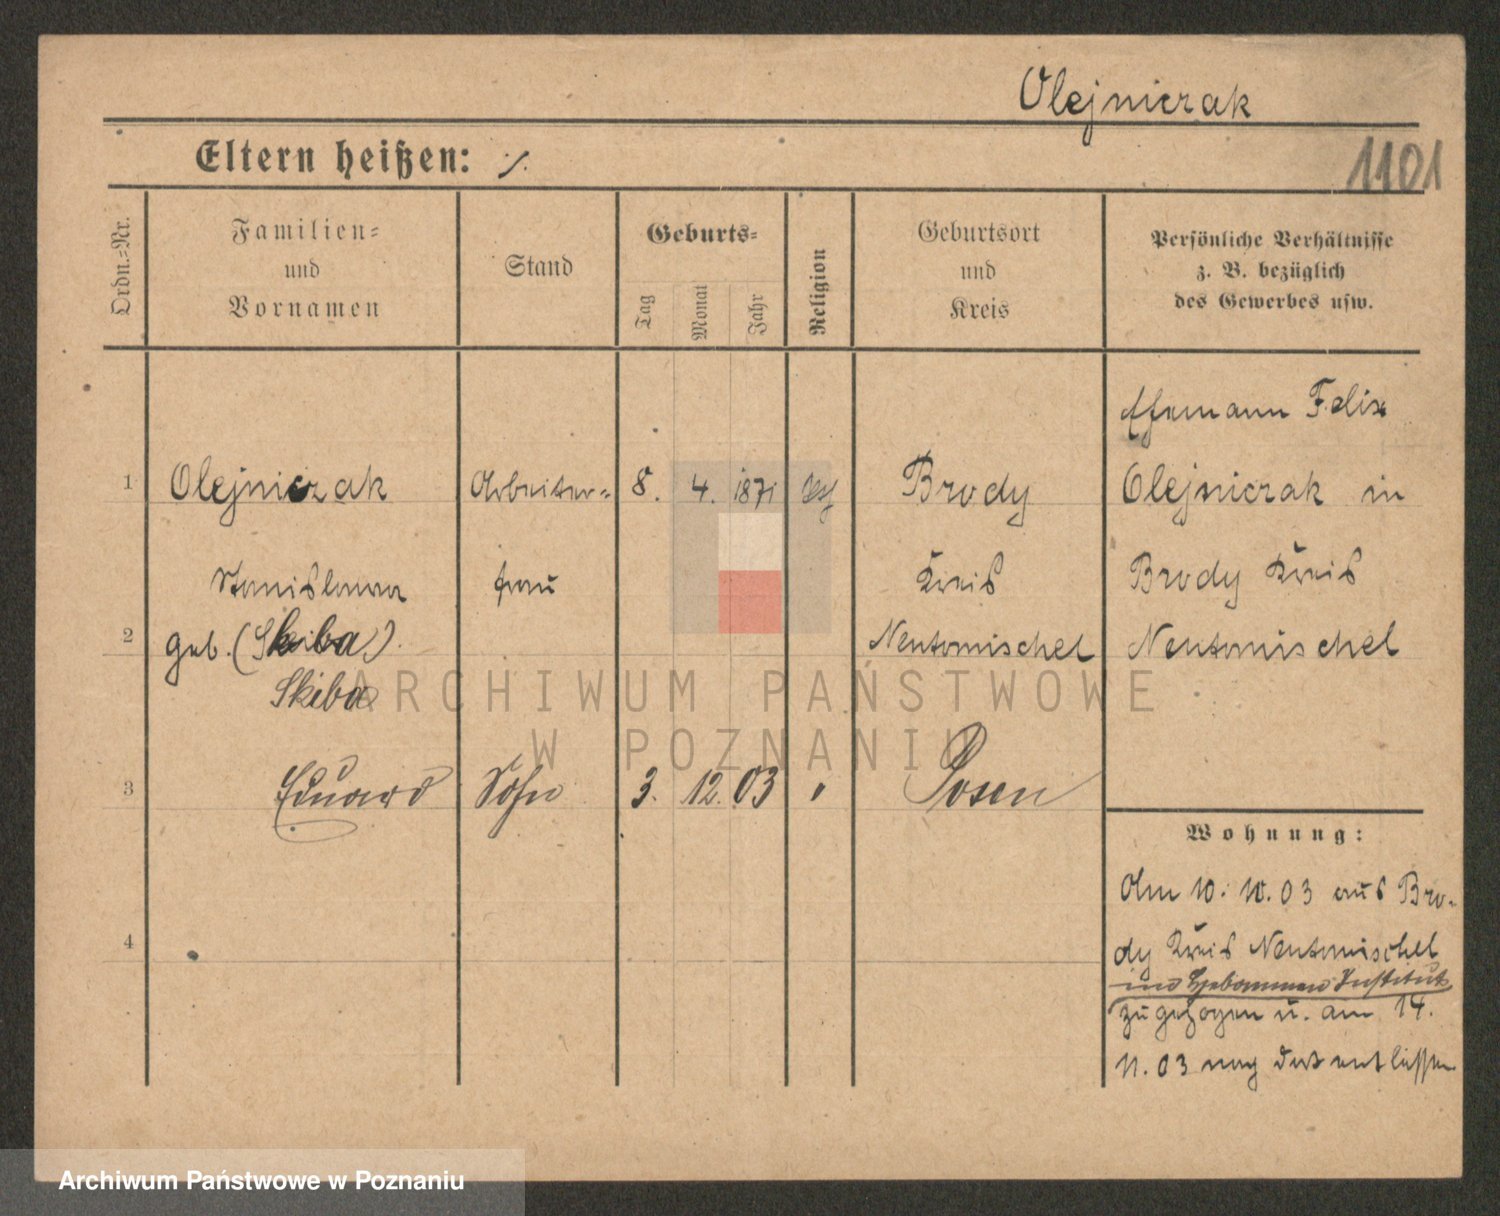 Olejniczak
Eltern heißen: ⁒
1101
Ordn.-Nr.
Familien-
und
Vornamen
Stand
Geburts-
Tag
Monat
Jahr
Religion
Geburtsort
und
Kreis
Persönliche Verhältnisse
z. B. bezüglich
des Gewerbes usw.
Ehemann Felix
1 Olejniczak Arbeiter- 8. 4. 1871 Brody Olejniczak in
Stanislawa frau Kreis Brody Kreis
2 geb. (Skiba). Neutomischel Neutomischel
Skiba
3 Eduard Sohn 3. 12. 03 " Posen
Wohnung:
Am 10. 10. 03 aus Bro-
4 dy Kreis Neutomischel
ins Hebammen Institut
zugezogen u. am 14.
11. 03 nach dort entlassen
ARCHIWUM PAŃSTWOWE
W POZNANIU
Archiwum Państwowe w Poznaniu